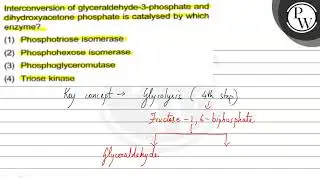 Interconversion of glyceraldehyde-3-phosphate and
dihydroxyacetone phosphate is catalysed by which
enzyme?
(1) Phosphotriose isomerase
(2) Phosphohexose isomerase
(3) Phosphoglyceromutase
(4) Triose kinase
Key concept → Glycolysis ( 4th step)
Fructose -1,6-biphosphate
Glyceraldehyde
PW